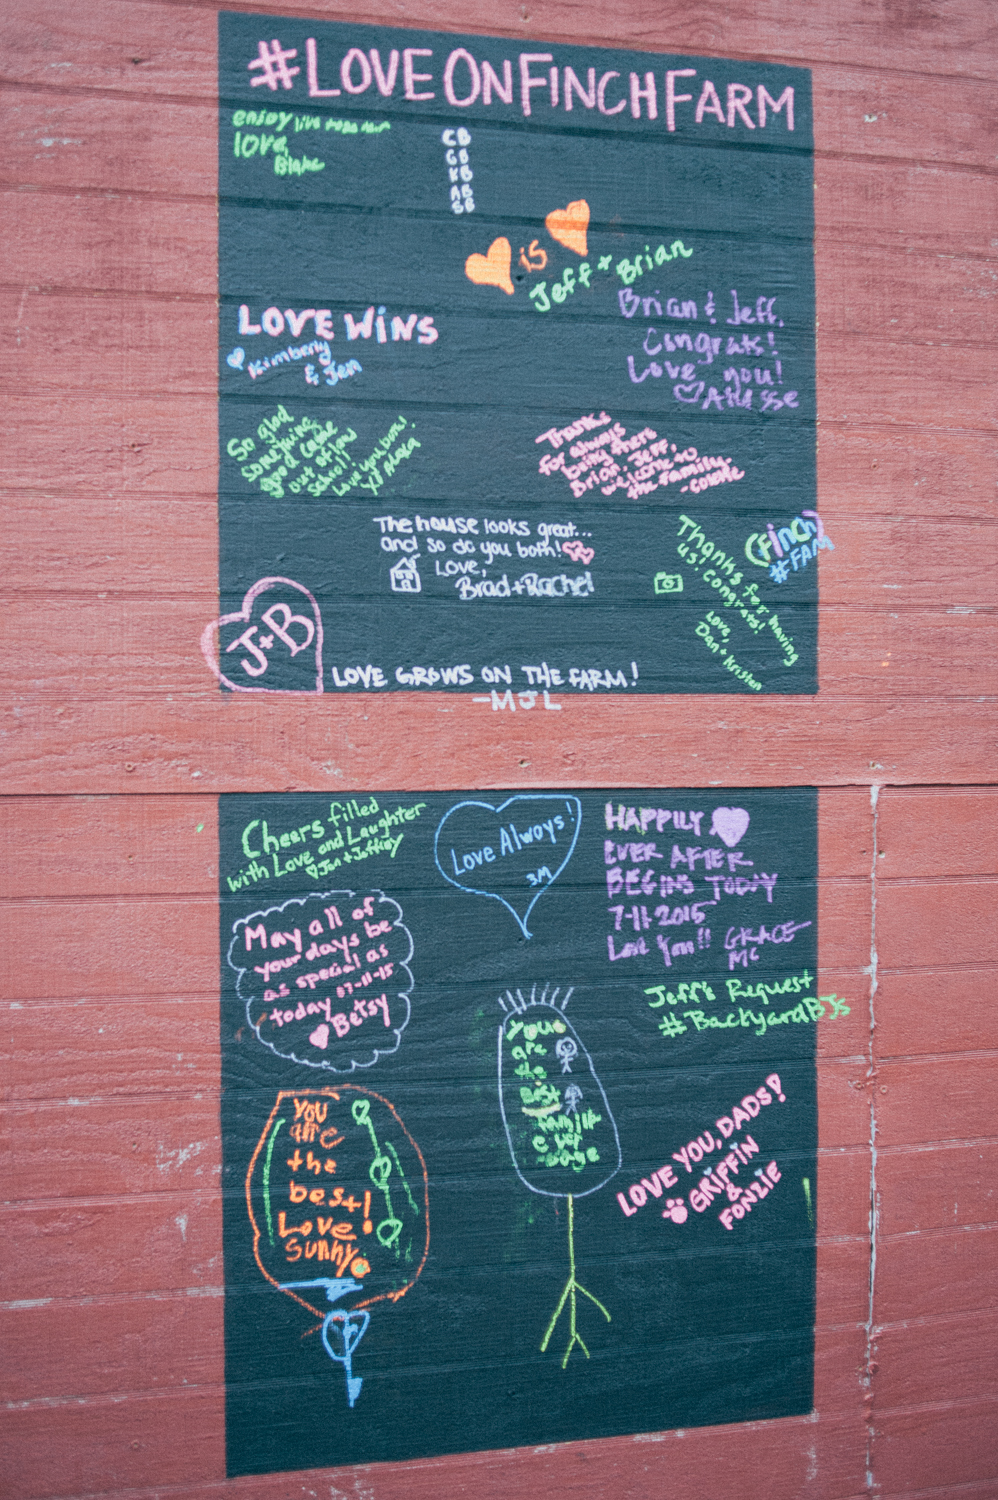 #LOVEONFINCHFARM
enjoy live
love,
Blake
CB
GB
KB
AB
SB
is
Jeff + Brian
LOVE WINS
Kimberly
& Jen
Brian & Jeff,
Congrats!
Love you!
So glad
something
good came
out of law
school!
Love you both!
Thanks
for always
being there
Brian. Jeff,
welcome to
the family.
-Colette
The house looks great...
and so do you both!
Love,
Brad+Rachel
(Finch)
#FAM
Thanks for having
us! Congrats!
Love,
Dan + Kristen
J+B
LOVE GROWS ON THE FARM!
-MJL
Cheers filled
with Love and Laughter
Jan + Jeffrey
Love Always!
3M
HAPPILY
EVER AFTER
BEGINS TODAY
7-11-2015
Love You!! GRACE
MC
May all of
your days be
as special as
today 07-11-15
Betsy
Jeff's Request
#BackyardBJs
you
are
the
best!
Love!
Sunny
Your
are
the
Best
family
ever
LOVE YOU, DADS!
GRIFFIN
&
FONZIE